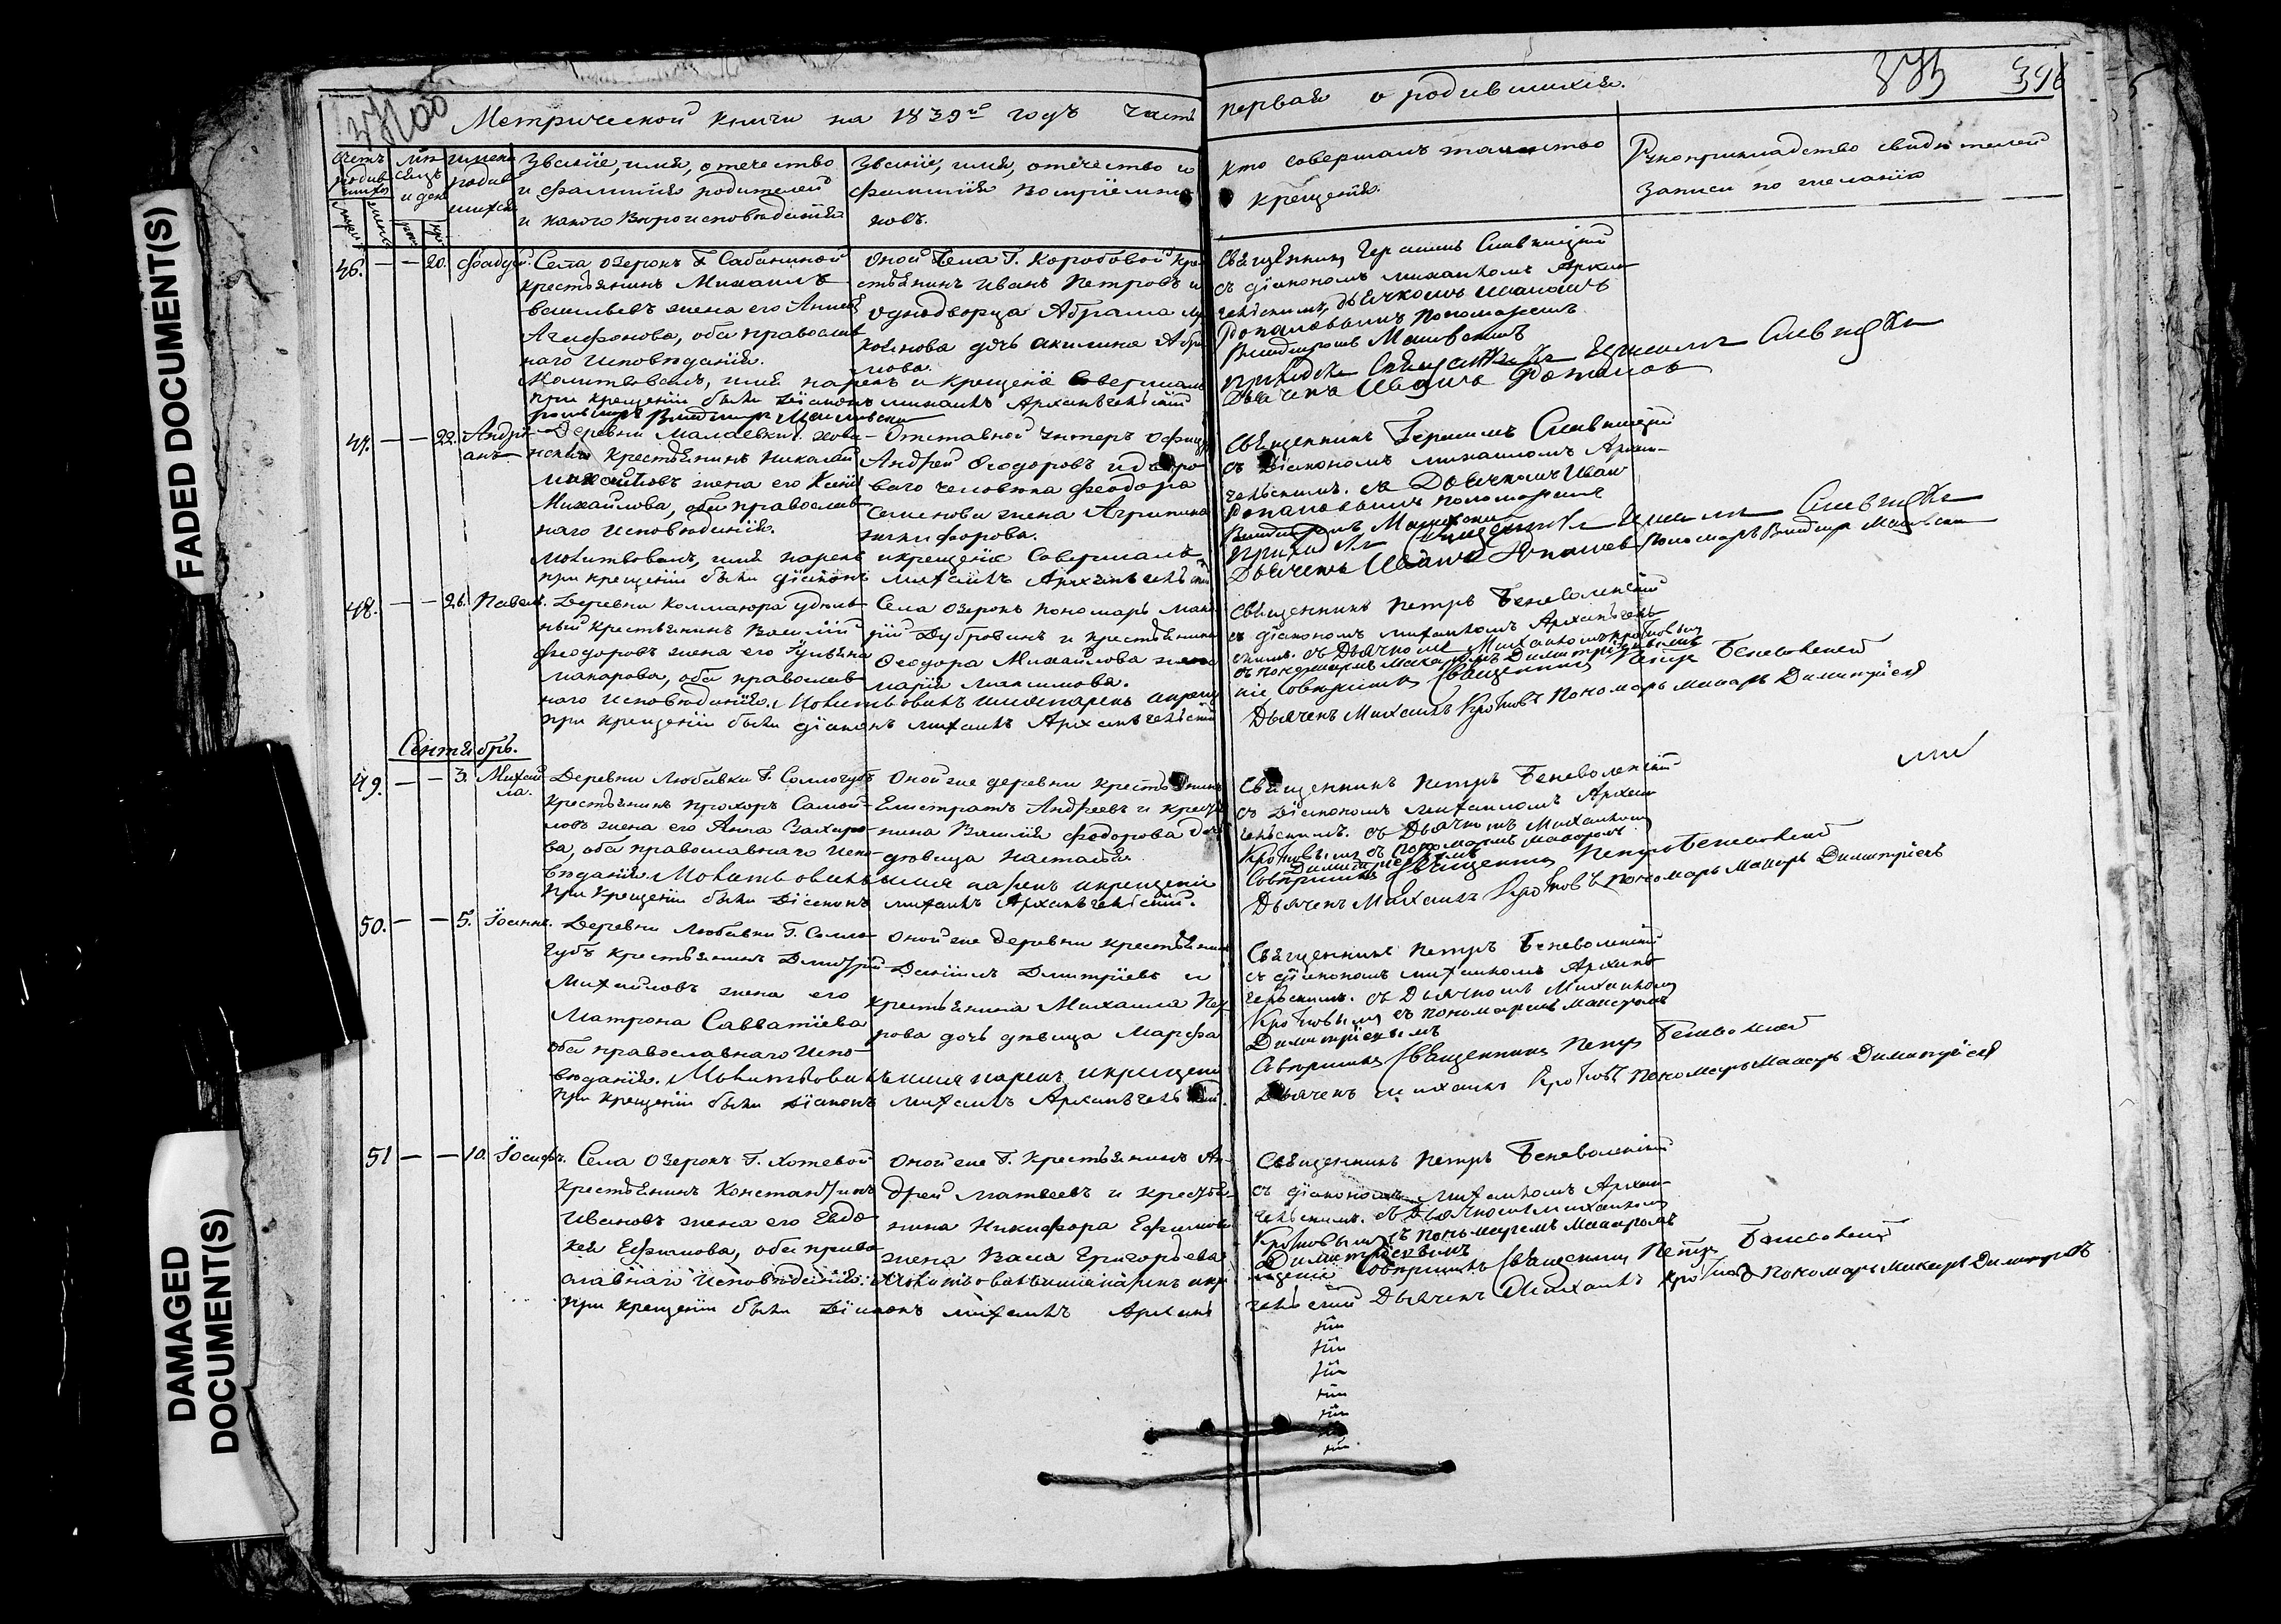 FADED DOCUMENT(S)
DAMAGED
DOCUMENT(S)
Метрической книги на 1839й годъ часть
первая о родившихся.
375 396
Счетъ
родив-
шихся
мѣ-
сяцъ
и день
имена
родив
шихся
Званіе, имя, отечество
и фамилія родителей
и какого вѣроисповѣданія
Званіе, имя, отечество и
фамилія воспріемни-
ковъ.
Кто совершалъ таинство
крещенія.
Рукоприкладство свидѣтелей
записи по желанію
46. — — 20. Фадѣй.
Села Озерокъ Г. Сабаниной
крестьянинъ Михаилъ
Васильевъ жена его Анна
Агафонова, оба православ
наго исповѣданія.
Молитвовалъ, имя нарекъ и крещеніе совершалъ
при крещеніи были діаконъ Михаилъ Архангельскій
Оной Села Г. Коробовой кре
стьянинъ Иванъ Петровъ и
однодворца Абрама
дочь Акилина Абра
мова.
Священникъ Герасимъ Славницкій
съ діакономъ Михаиломъ Архан
гельскимъ, дьячкомъ Иваномъ
пономаремъ
Владимиромъ
47. — — 22. Андрі-
анъ
Деревни Малаевки
крестьянинъ Николай
Михайловъ жена его Ксенія
Михайлова, оба православ
наго исповѣданія.
Молитвовалъ, имя нарекъ и крещеніе совершалъ
при крещеніи были діаконъ Михаилъ Архангельскій
Отставной унтеръ офицеръ
Андрей Ѳеодоровъ и дворо
ваго человѣка Феодора
Семенова жена Агрипина
Никифорова.
Священникъ Герасимъ Славницкій
съ діакономъ Михаиломъ Архан-
гельскимъ. съ Дьячкомъ Иван
пономаремъ
48. — — 26. Павелъ.
Деревни Колмакора удѣль
ный крестьянинъ Василій
Феодоровъ жена его Гульяна
Макарова, оба православ
наго исповѣданія. Молитвовалъ имя нарекъ и креще
при крещеніи были діаконъ Михаилъ Архангельскій
Села Озерокъ пономарь
Дубровинъ и крестьянина
Ѳеодора Михайлова жена
Марія Максимова.
Священникъ Петръ Беневоленскій
съ діакономъ Михаиломъ Архангель
скимъ. съ Дьячкомъ Михаиломъ Кротовымъ
съ пономаремъ Макаромъ Димитріевымъ
ніе совершилъ Священникъ Петръ Беневоленскій
Дьячекъ Михаилъ Кротовъ Пономарь Макаръ Димитріевъ
Сентябрь.
49. — — 3. Михаи-
ла.
Деревни Любавки Г. Соллогубъ
крестьянинъ Прохоръ Самой-
ловъ жена его Анна Захаро-
ва, оба православнаго испо-
вѣданія. Молитвовалъ имя нарекъ и крещеніе
при крещеніи были діаконъ Михаилъ Архангельскій.
Оной же деревни крестьянинъ
Елистратъ Андреевъ и крестья
нина Василія Федорова дочь
дѣвица Настасья
Священникъ Петръ Беневоленскій
съ діакономъ Михаиломъ Архан
гельскимъ. съ Дьячкомъ Михаиломъ
Кротовымъ съ пономаремъ Макаромъ
Димитріевымъ
Совершилъ Священникъ Петръ Беневоленскій
Дьячекъ Михаилъ Кротовъ Пономарь Макаръ Димитріевъ
50. — — 5. Іоаннъ.
Деревни Любавки Г. Солло-
губъ крестьянинъ Дмитрій
Михайловъ жена его
Матрона Савватіева
оба православнаго испо-
вѣданія. Молитвовалъ имя нарекъ и крещеніе
при крещеніи были діаконъ Михаилъ Архангельскій.
Оной же деревни крестьянинъ
Даніилъ Дмитріевъ и
крестьянина Михаила Пет
рова дочь дѣвица Марфа
Священникъ Петръ Беневоленскій
съ діакономъ МихаиломъАрхан
гельскимъ. съ Дьячкомъ Михаиломъ
Кротовымъ съ пономаремъ Макаромъ
Димитріевымъ
Совершилъ Священникъ Петръ Беневоленскій
Дьячекъ Михаилъ Кротовъ Пономарь Макаръ Димитріевъ
51 — — 10. Іосифъ.
Села Озерокъ Г. Хотевой
крестьянинъ Константинъ
Ивановъ жена его Евдо
кея Ефимова, оба право
славнаго исповѣданія. Молитвовалъ имя нарекъ и кре
при крещеніи были діаконъ Михаилъ Архан
Оной же Г. крестьянинъ Ан-
дрей Матвеевъ и крестья
нина Никифора Ефимова
жена Васа Григорьева
Священникъ Петръ Беневоленскій
съ діакономъ Михаиломъ Архан-
гельскимъ. съ Дьячкомъ Михаиломъ
Кротовымъ съ пономаремъ Макаромъ
Димитріевымъ
щеніе совершилъ Священникъ Петръ Беневоленскій
гельскій Дьячекъ Михаилъ Кротовъ Пономарь Макаръ Димитріевъ